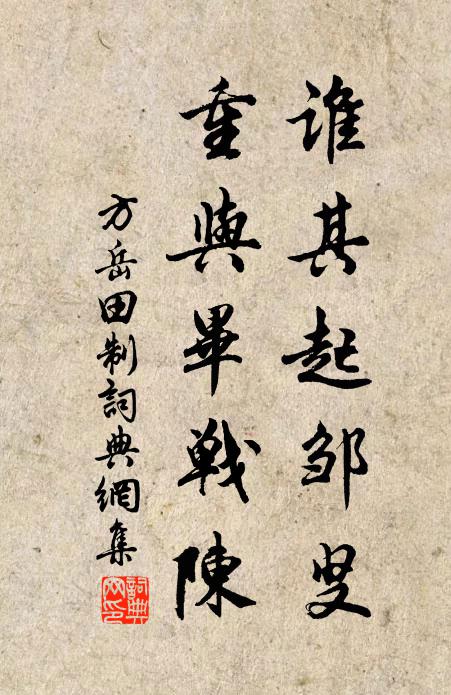 誰其起邹叟
重與畢戰陳
方岳田制詞典網集
詞典